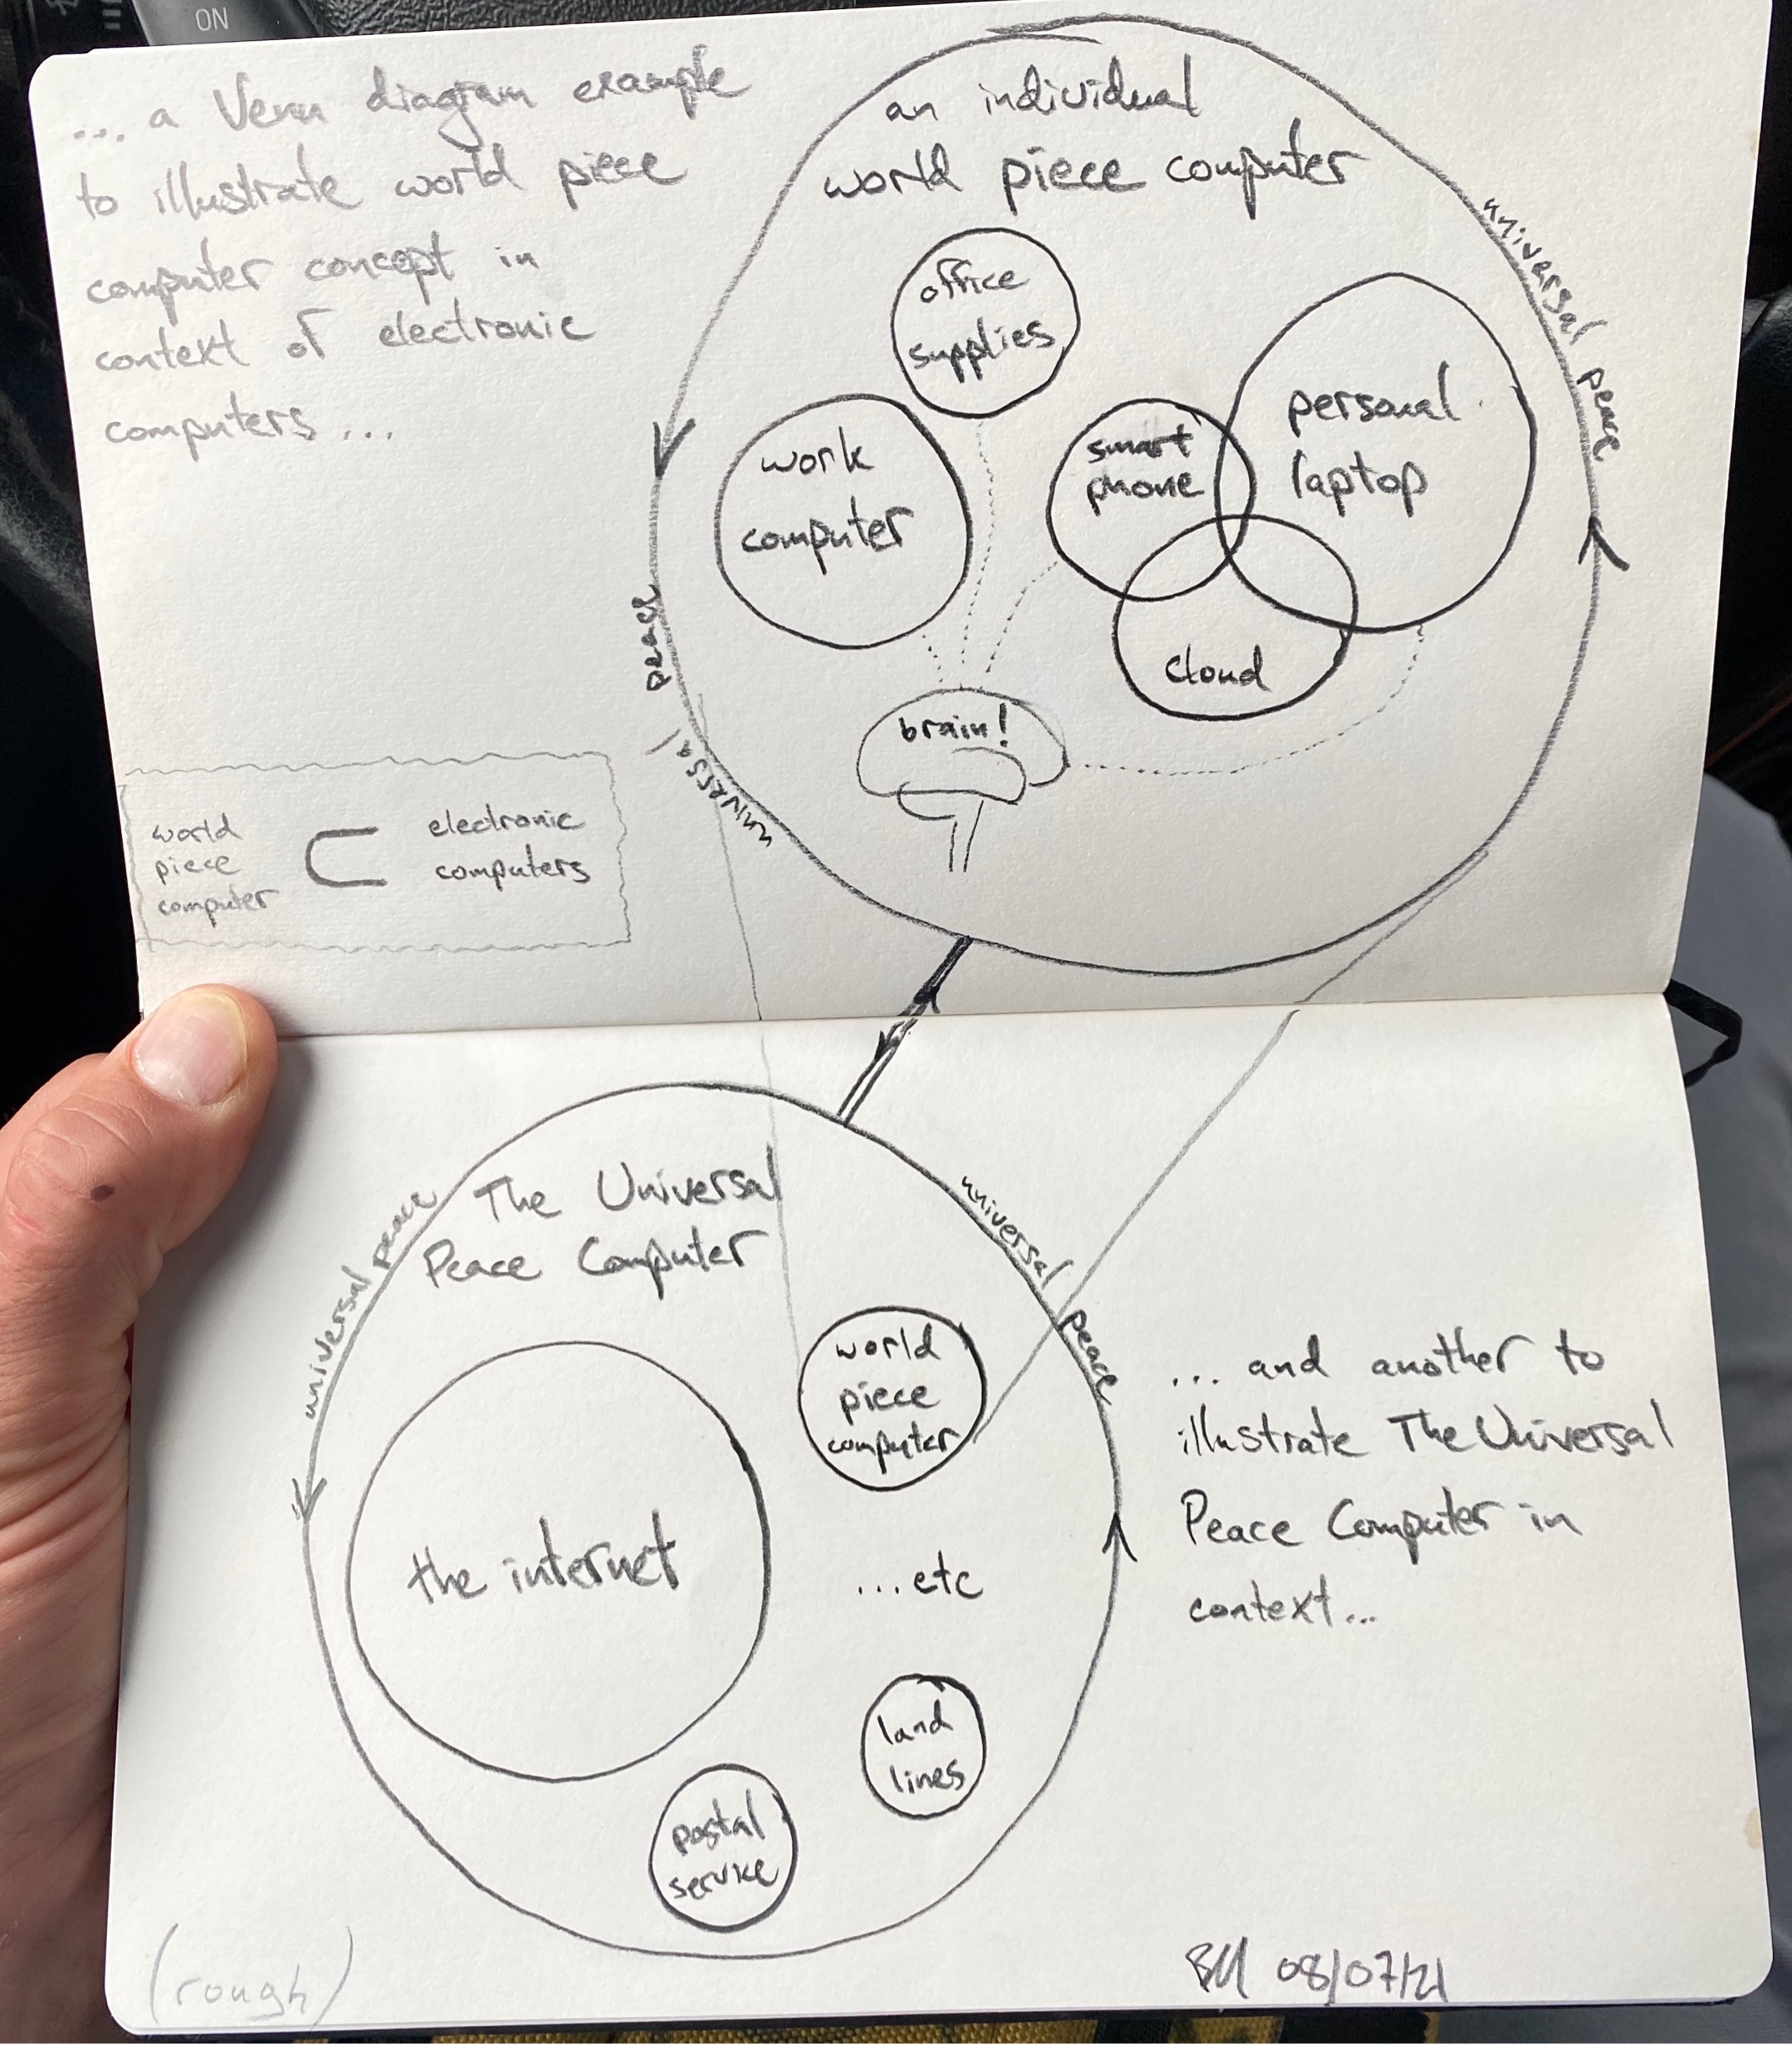 ON
... a Venn diagram example
to illustrate world piece
computer concept in
context of electronic
computers ...
an individual
world piece computer
universal peace
office
supplies
personal
laptop
smart
phone
work
computer
cloud
brain!
universal peace
world
piece
computer
⊂
electronic
computers
The Universal
Peace Computer
universal peace
universal peace
world
piece
computer
the internet
...etc
land
lines
postal
service
... and another to
illustrate The Universal
Peace Computer in
context...
(rough)
BM 08/07/21